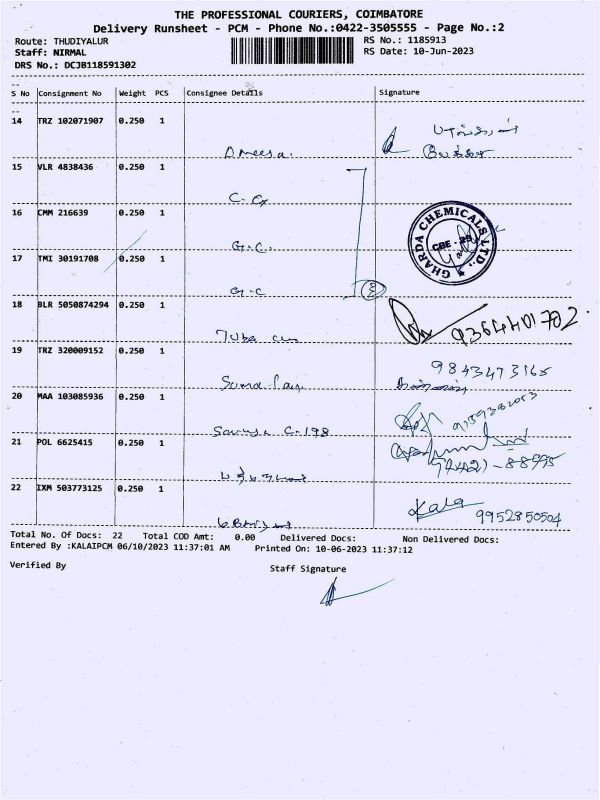 THE PROFESSIONAL COURIERS, COIMBATORE
Delivery Runsheet - PCM - Phone No.:0422-3505555 - Page No.:2
Route: THUDIYALUR
Staff: NIRMAL
DRS No.: DCJB118591302
RS No.: 1185913
RS Date: 10-Jun-2023
S No Consignment No Weight PCS Consignee Details Signature
14 TRZ 102071907 0.250 1
15 VLR 4838436 0.250 1
16 CMM 216639 0.250 1
G.C.
GHARDA CHEMICALS LTD.,
CBE - 29
17 TMI 30191708 0.250 1
G.C
18 BLR 5050874294 0.250 1
9364401702
19 TRZ 320009152 0.250 1
9843473165
20 MAA 103085936 0.250 1
C-198
21 POL 6625415 0.250 1
22 IXM 503773125 0.250 1
Kala
9952850504
Total No. Of Docs: 22 Total COD Amt: 0.00 Delivered Docs: Non Delivered Docs:
Entered By :KALAIPCM 06/10/2023 11:37:01 AM Printed On: 10-06-2023 11:37:12
Verified By Staff Signature